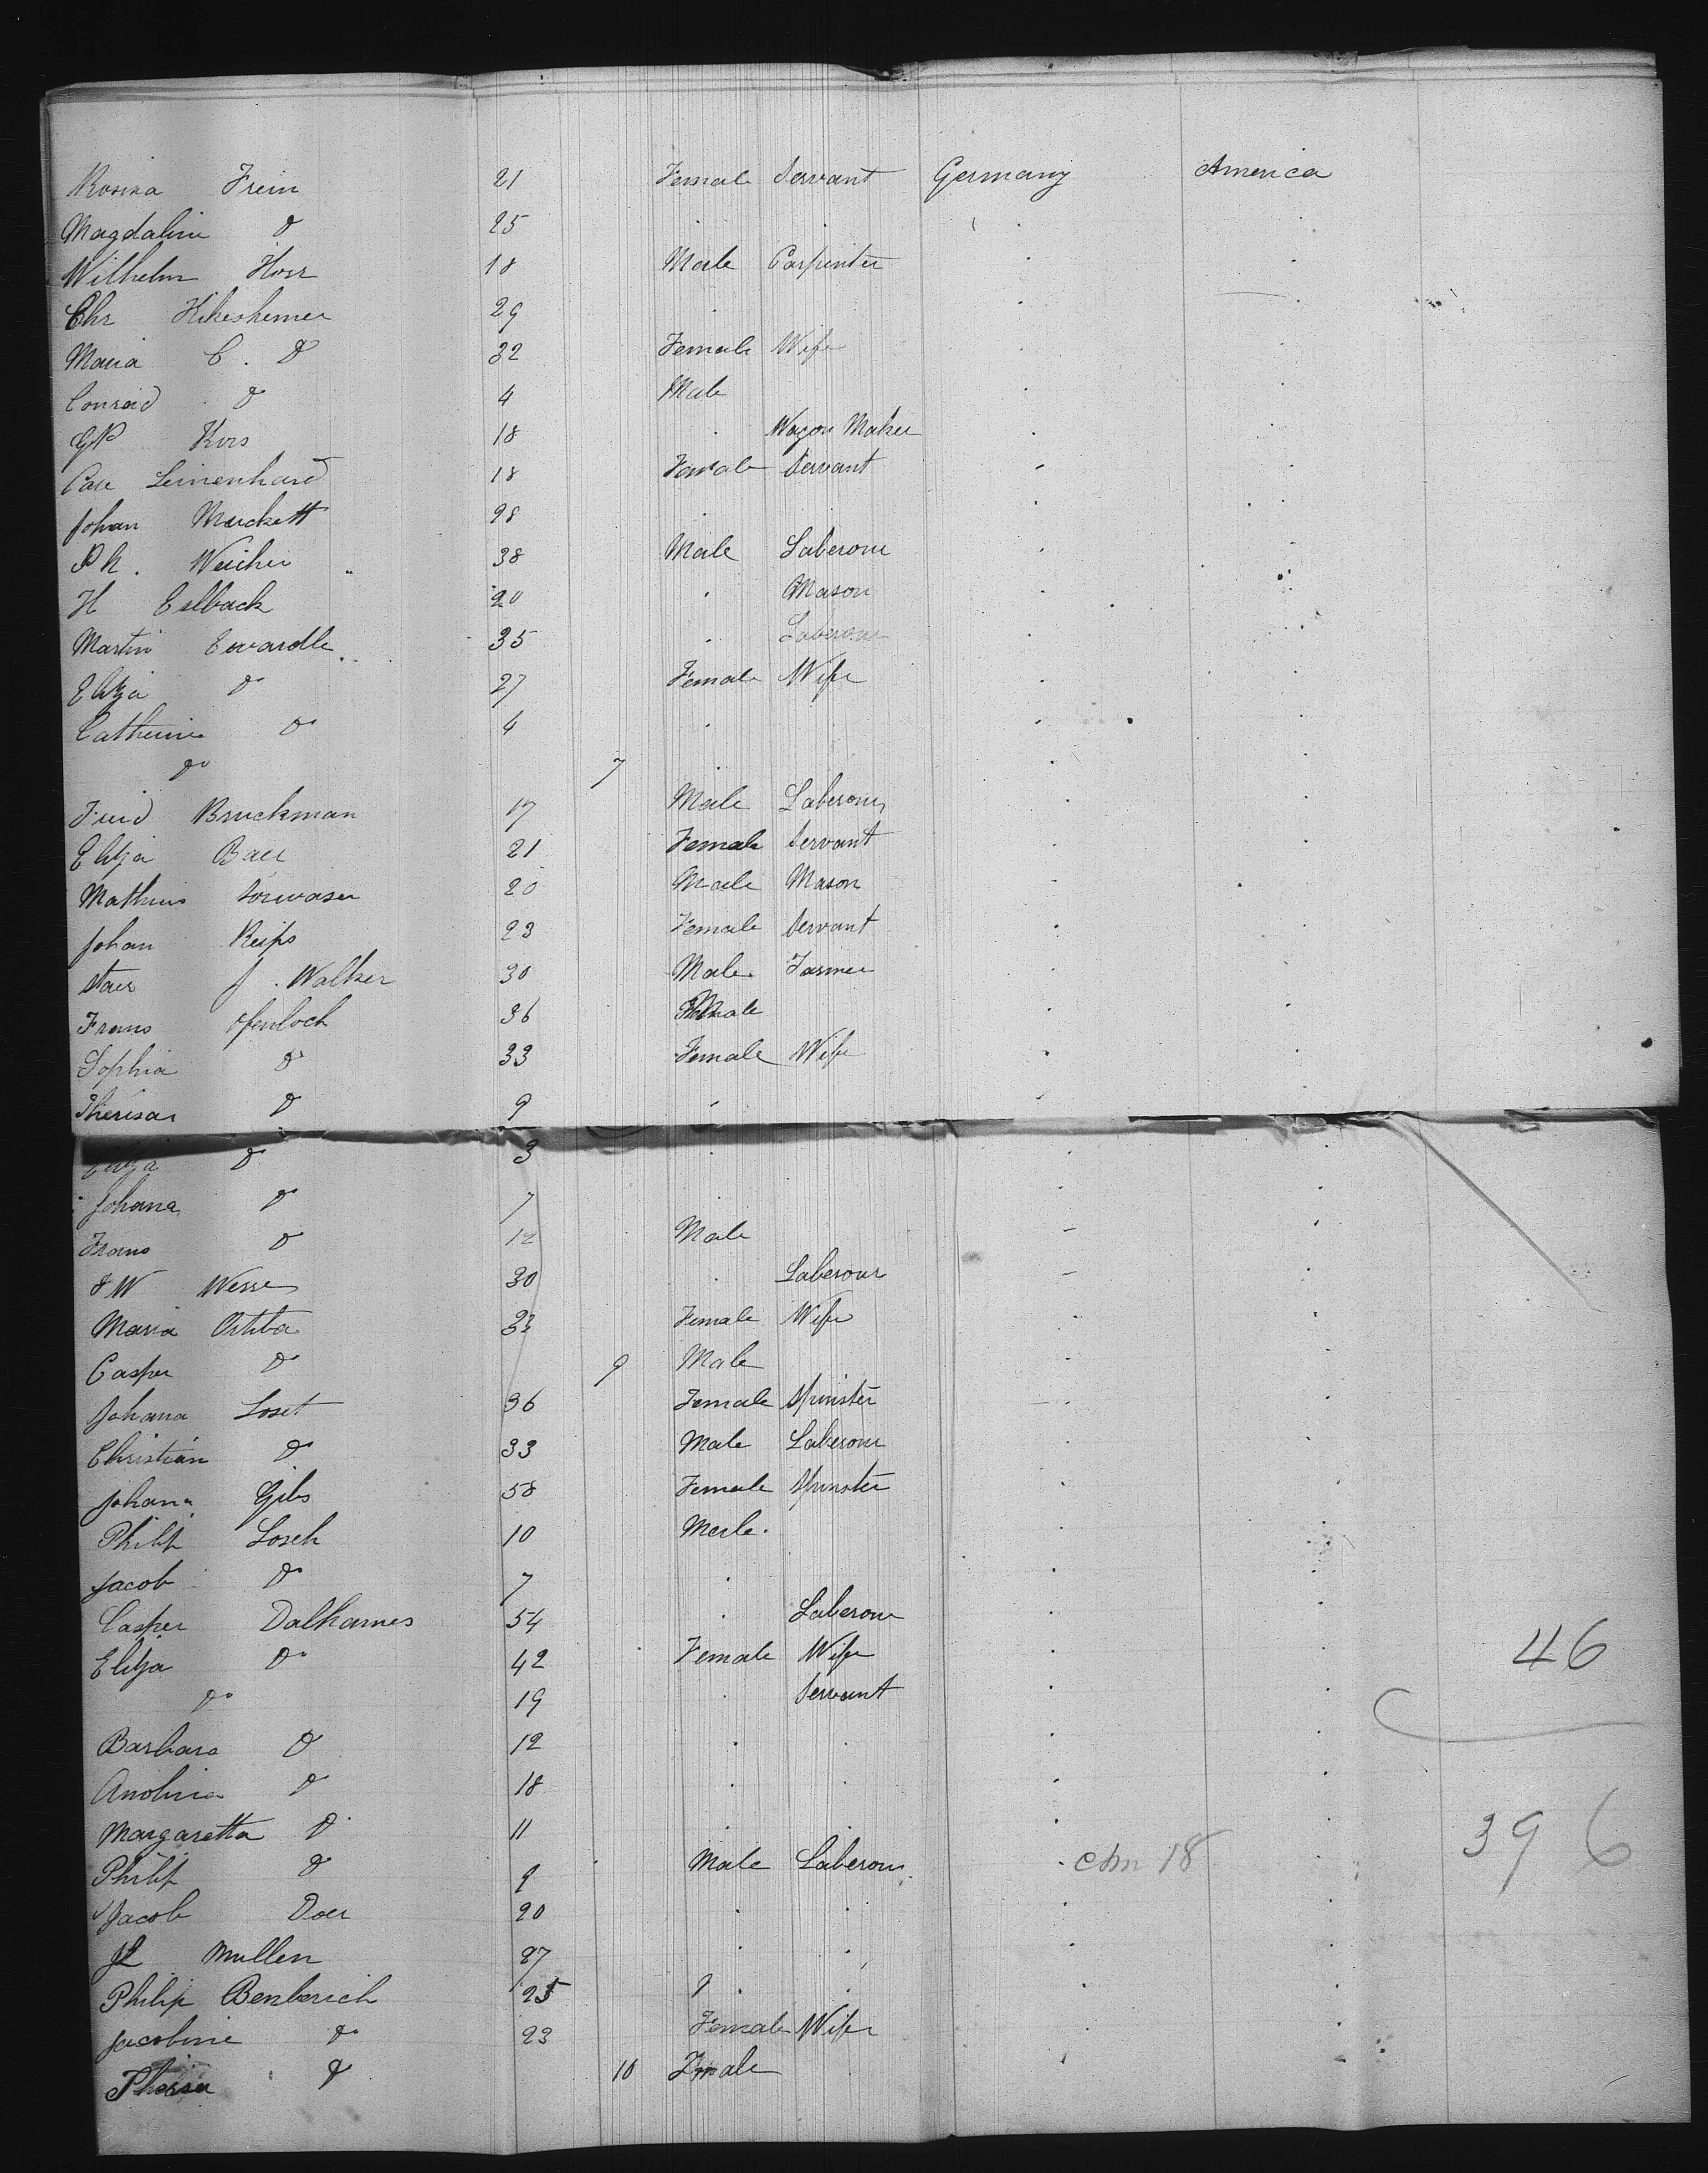 Rosina Frein 21 Female Servant Germany America
Magdaline Do 25
Wilhelm Horr 18 Male Carpinter
Chr Hikeshemer 29
Maria C. Do 32 Female Wife
Conrad Do 4 Male
GP Kors 18 Wagon Maker
Car Leinenhard 18 Female Servant
Johan Muckett 28
Ph. Weicher 38 Male Laberour
H Eslback 20 Mason
Martin Ewardle 35 Laberour
Elitza Do 27 Female Wife
Catherine Do 4
Do 7
Fried Bruckman 17 Male Laberour
Elitza Baer 21 Female Servant
Mathius 20 Male Mason
Johan Reips 23 Female Servant
J. Walker 30 Male Farmer
Frans Ofenloch 36 Male
Sophia Do 33 Female Wife
Theresa Do 9
Elitza Do 3
Johana Do 7
Frans Do 12 Male
Wesse 30 Laberour
Maria Ostita 33 Female Wife
Casper Do 9 Male
Johana Loset 36 Female Spinster
Christian Do 33 Male Laberour
Johana Gibs 58 Female Spinster
Philip Losch 10 Male
Jacob Do 7
Casper Dalhames 54 Laberour
Elitza Do 42 Female Wife 46
Do 19 Servant
Barbara Do 12
Do 18
Margaretta Do 11
Philip Do 9 Male Laberour chn 18 396
Jacob Doer 20
JL Mullen 27
Philip Benberich 25
Jacobine Do 23 Female Wife
Theresa Do 10 Fmale